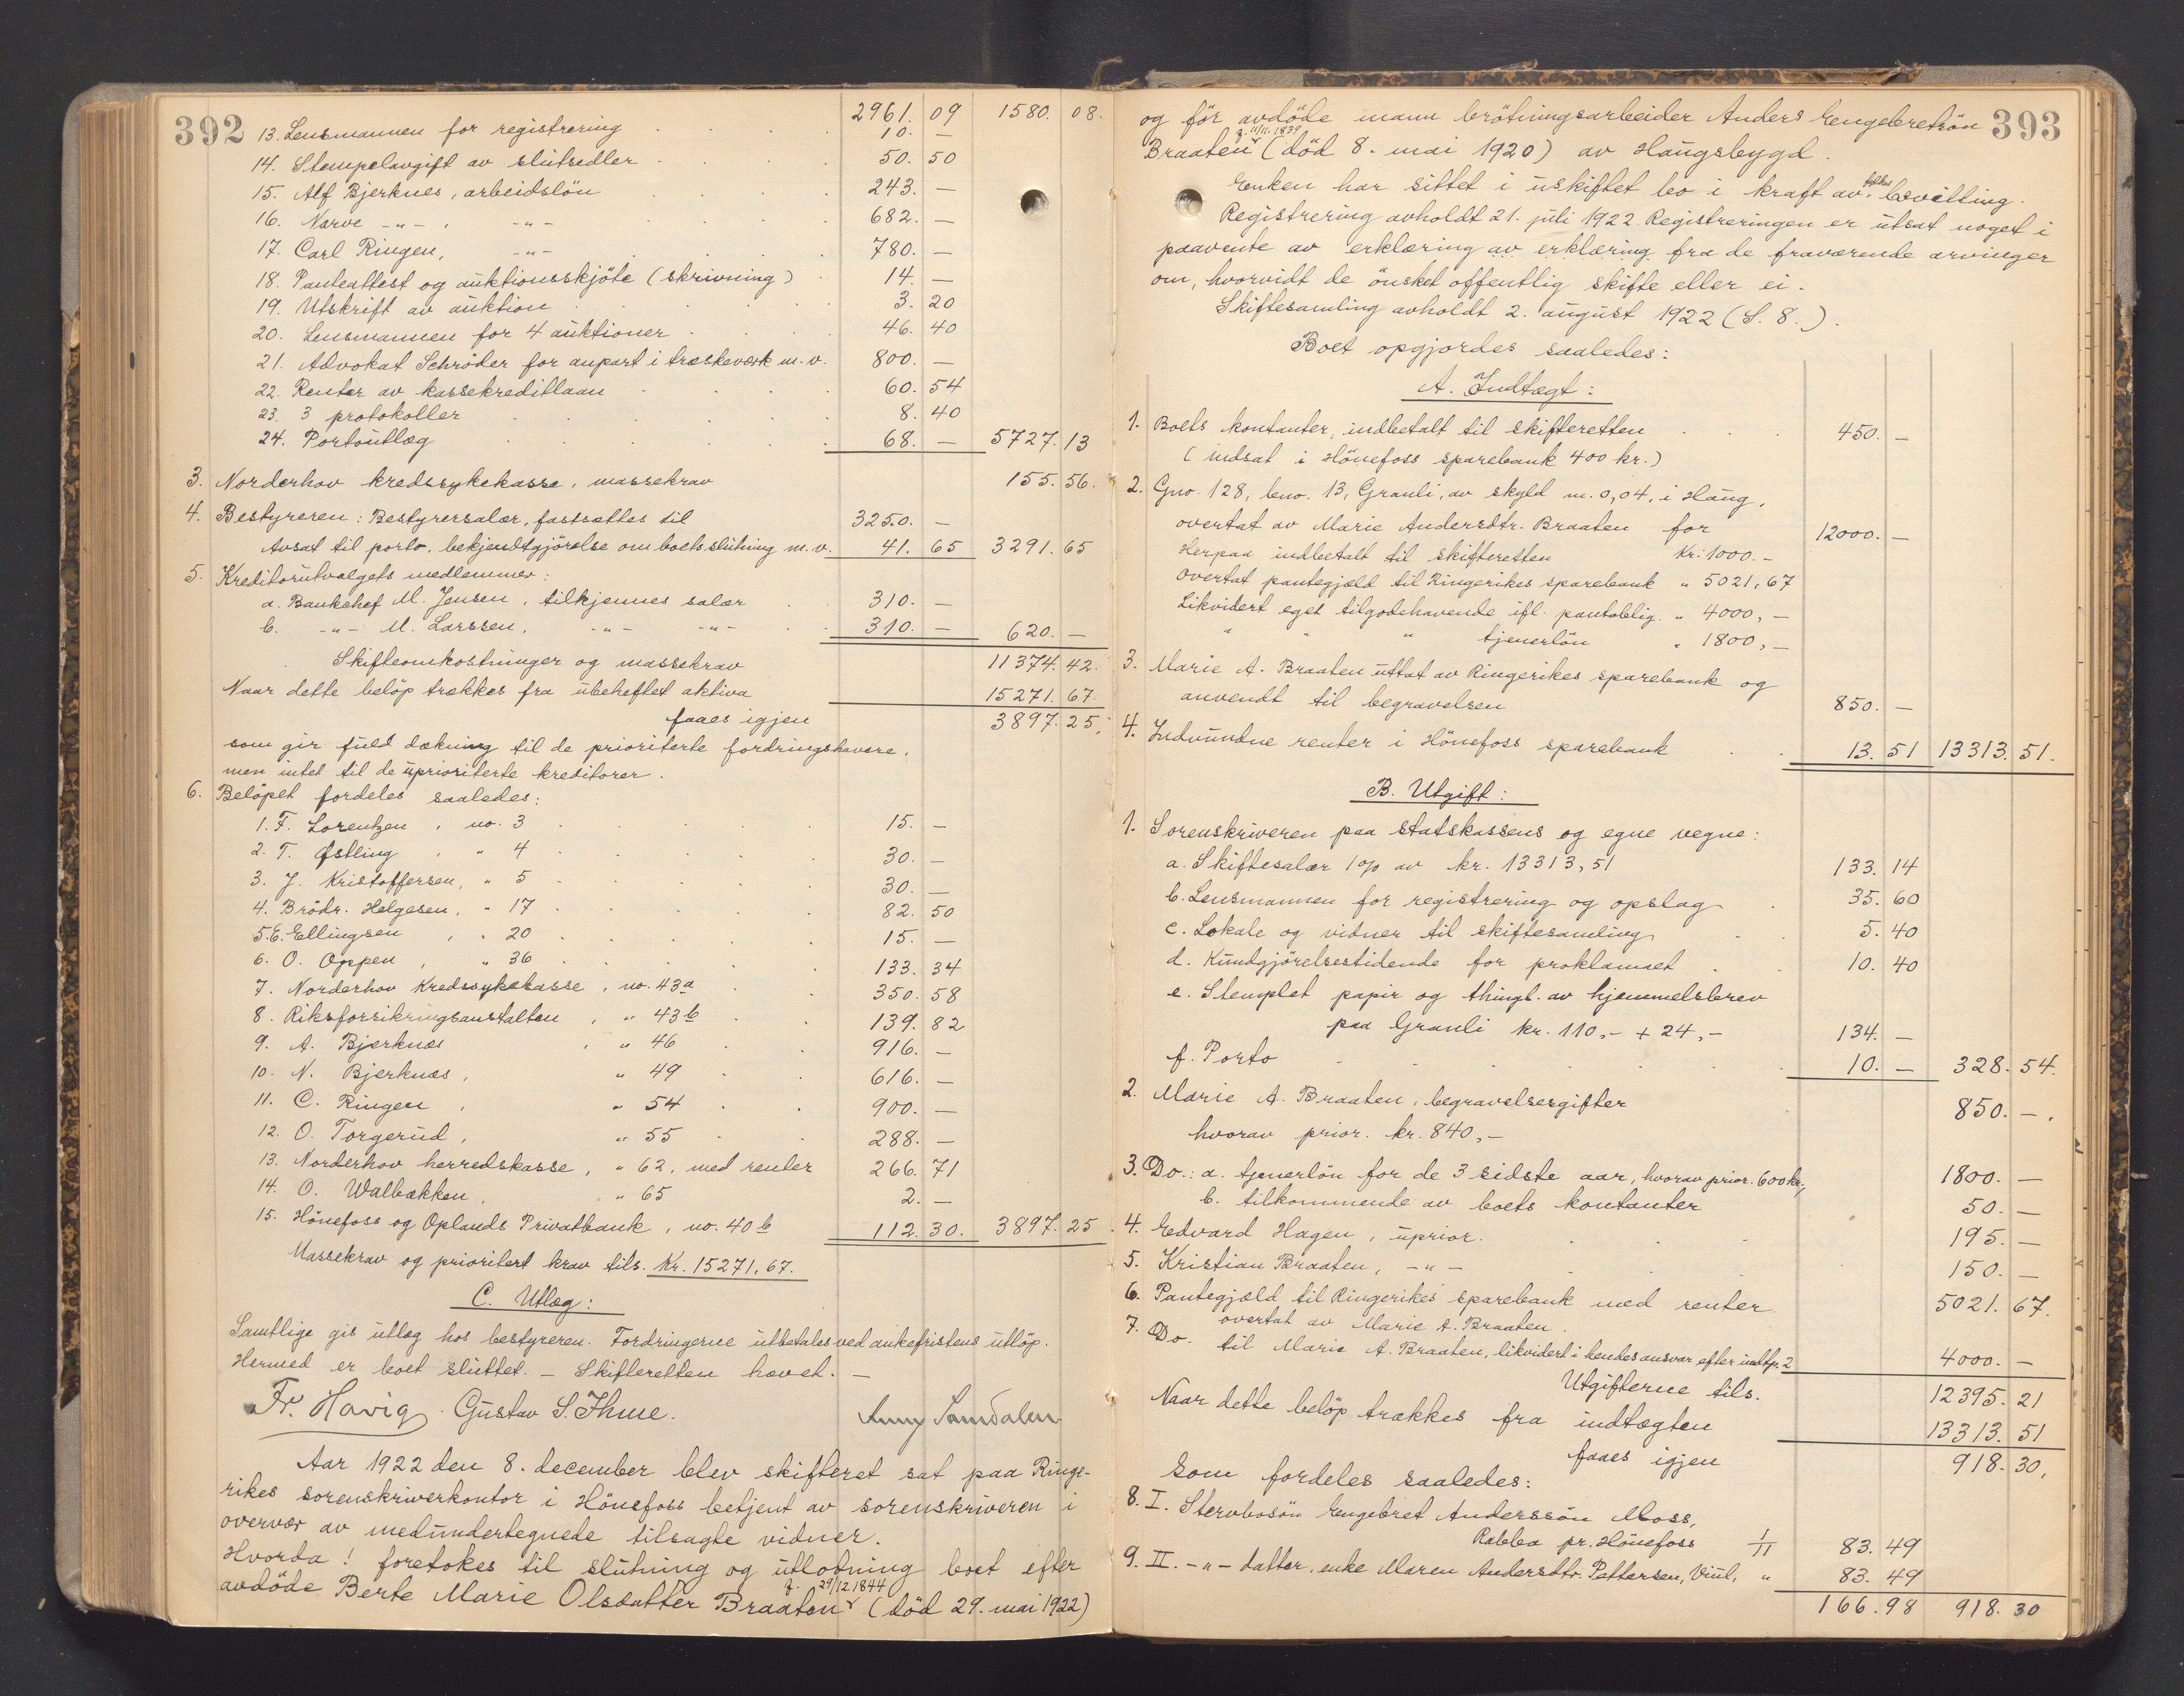 392
2961. 09 1580. 08.
13. Lensmannen for registrering . . . . 10. —
14. Stempelavgift av slutsedler . . . 50. 50
15. Alf Bjerknes, arbeidslön . . . 243. —
16. Narve -"- , -"- . . . 682. —
17. Carl Ringen, -"- . . . 780. —
18. Panteattest og auktionsskjöte (skrivning) . 14. —
19. Utskrift av auktion . . . . 3. 20
20. Lensmannen for 4 auktioner . . . 46. 40
21. Advokat Schröder for anpart i træskeverk m.v. 800. —
22. Renter av kassekreditlaan . . . 60. 54
23. 3 protokoller . . . . 8. 40
24. Portoutlæg . . . . 68. — 5727. 13
3. Norderhov kredssykekasse, massekrav 155. 56.
4. Bestyreren: Bestyrersalær, fastsættes til 3250. —
Avsat til porto, bekjendtgjörelse om boets slutning m.v. 41. 65 3291. 65
5. Kreditorutvalgets medlemmer:
a. Bankchef M. Jensen, tilkjennes salær . . 310. —
b. -"- M. Larssen, -"- -"- . . 310. — 620. —
Skifteomkostninger og massekrav 11374. 42.
Naar dette belöp trækkes fra ubeheftet aktiva 15271. 67.
faaes igjen 3897. 25,
som gir fuld dækning til de prioriterte fordringshavere,
men intet til de uprioriterte kreditorer.
6. Belöpet fordeles saaledes:
1. F. Lorentzen, no. 3 . . . . 15. —
2. T. Østling , " 4 . . . . 30. —
3. J. Kristoffersen, " 5 . . . . 30. —
4. Brödr. Helgesen, " 17 . . . . 82. 50
5. E. Ellingsen , " 20 . . . . 15. —
6. O. Oppen , " 36 . . . . 133. 34
7. Norderhov Kredssykekasse, no. 43a . . 350. 58
8. Riksforsikringsanstalten , " 43b . . 139. 82
9. A. Bjerknæs , " 46 . . 916. —
10. N. Bjerknæs , " 49 . . 616. —
11. C. Ringen , " 54 . . 900. —
12. O. Torgerud , " 55 . . 288. —
13. Norderhov herredskasse, " 62, med renter 266. 71
14. O. Walbækken , " 65 2. —
15. Hönefoss og Oplands Privatbank, no. 40b 112. 30. 3897. 25
Massekrav og prioritert krav tils. Kr. 15271,67.
C. Utlæg:
Samtlige gis utlæg hos bestyreren. Fordringerne utbetales ved ankefristens utløp.
Hermed er boet sluttet. — Skifteretten hævet. —
Fr. Havig Gustav S. Ihme. Anny Samdalen
Aar 1922 den 8. december blev skifteret sat paa Ringe-
rikes sorenskriverkontor i Hönefoss betjent av sorenskriveren i
overvær av medundertegnede tilsagte vidner.
Hvorda! foretokes til slutning og utlodning boet efter
f. 29/12 1844
avdöde Berte Marie Olsdatter Braaten (död 29. mai 1922)
393
og för avdöde mann brötningsarbeider Anders Engebretsön
f. 11/11. 1839
Braaten (död 8. mai 1920) av Haugsbygd.
Enken har sittet i uskiftet bo i kraft av fylkes bevilling.
Registrering avholdt 21. juli 1922. Registreringen er utsat noget i
paavente av erklæring av erklæring fra de fraværende arvinger
om, hvorvidt de önsket offentlig skifte eller ei.
Skiftesamling avholdt 2. august 1922 (S. 8.).
Boet opgjordes saaledes:
A. Indtægt:
1. Boets kontanter, indbetalt til skifteretten . . . 450. —
(indsat i Hönefoss sparebank 400 kr.)
2. Gno. 128, bno. 13, Granli, av skyld m. 0,04, i Haug,
overtat av Marie Andersdtr. Braaten for 12000. —
Herpaa indbetalt til skifteretten kr. 1000.-
Overtat pantegjæld til Ringerikes sparebank " 5021,67
Likvidert eget tilgodehavende ifl. pantoblig. " 4000,—
" " " tjenerlön " 1800,—
3. Marie A. Braaten uttat av Ringerikes sparebank og
anvendt til begravelsen 850. —
4. Indvundne renter i Hönefoss sparebank . . 13. 51 13313. 51.
B. Utgift:
1. Sorenskriveren paa statskassens og egne vegne:
a. Skiftesalær 1% av kr. 13313,51 133. 14
b. Lensmannen for registrering og opslag . 35. 60
c. Lokale og vidner til skiftesamling . . 5. 40
d. Kundgjörelsestidende for proklamaet . . 10. 40
e. Stemplet papir og thingl. av hjemmelsbrev
paa Granli kr. 110,- + 24,- 134. —
f. Porto . . . . . . 10. — 328. 54.
2. Marie A. Braaten, begravelsesgifter 850. —.
hvorav prior. kr. 840,—
3. Do.: a. tjenerlön for de 3 sidste aar, hvorav prior. 600 kr., 1800. —
b. tilkommende av boets kontanter 50. —
4. Edvard Hagen, uprior. . . . 195. —
5. Kristian Braaten, -"- . . . 150. —
6. Pantegjæld til Ringerikes sparebank med renter 5021. 67.
overtat av Marie A. Braaten.
7. Do. til Marie A. Braaten, likvidert i hendes ansvar efter indtp. 2 4000. —
Utgifterne tils. 12395. 21
Naar dette belöp trækkes fra indtægten 13313. 51
faaes igjen 918. 30,
som fordeles saaledes:
8. I. Stervbosön Engebret Anderssön Moss,
Rabba pr. Hönefoss 1/11 83. 49
9. II. -"- datter, enke Maren Andersdtr. Pettersen, Viul, " 83. 49
166. 98 918. 30